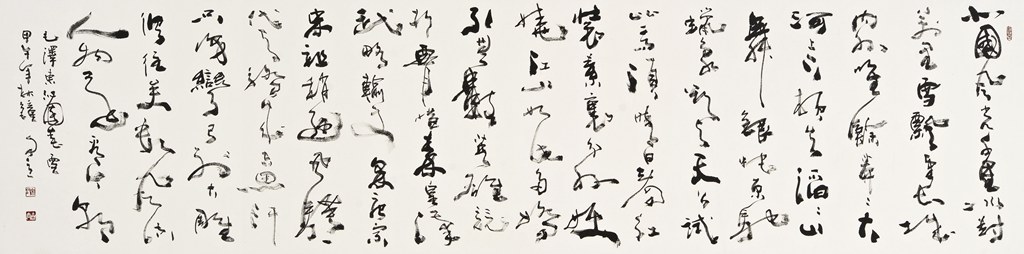 北國風光千里冰封
萬里雪飄望長城
內外唯餘莽々大
河上下頓失滔々山
舞銀蛇原馳
蠟象欲與天公試
比高須晴日看紅
裝素裹分外妖
嬈江山如此多嬌
引無數英雄競
折腰惜秦皇漢
武略輸文采唐宗
宋祖稍遜風騷一
代天驕成吉思汗
只識彎弓射大雕
俱往矣數風流
人物還看今朝
毛澤東沁園春雪
甲午年秋